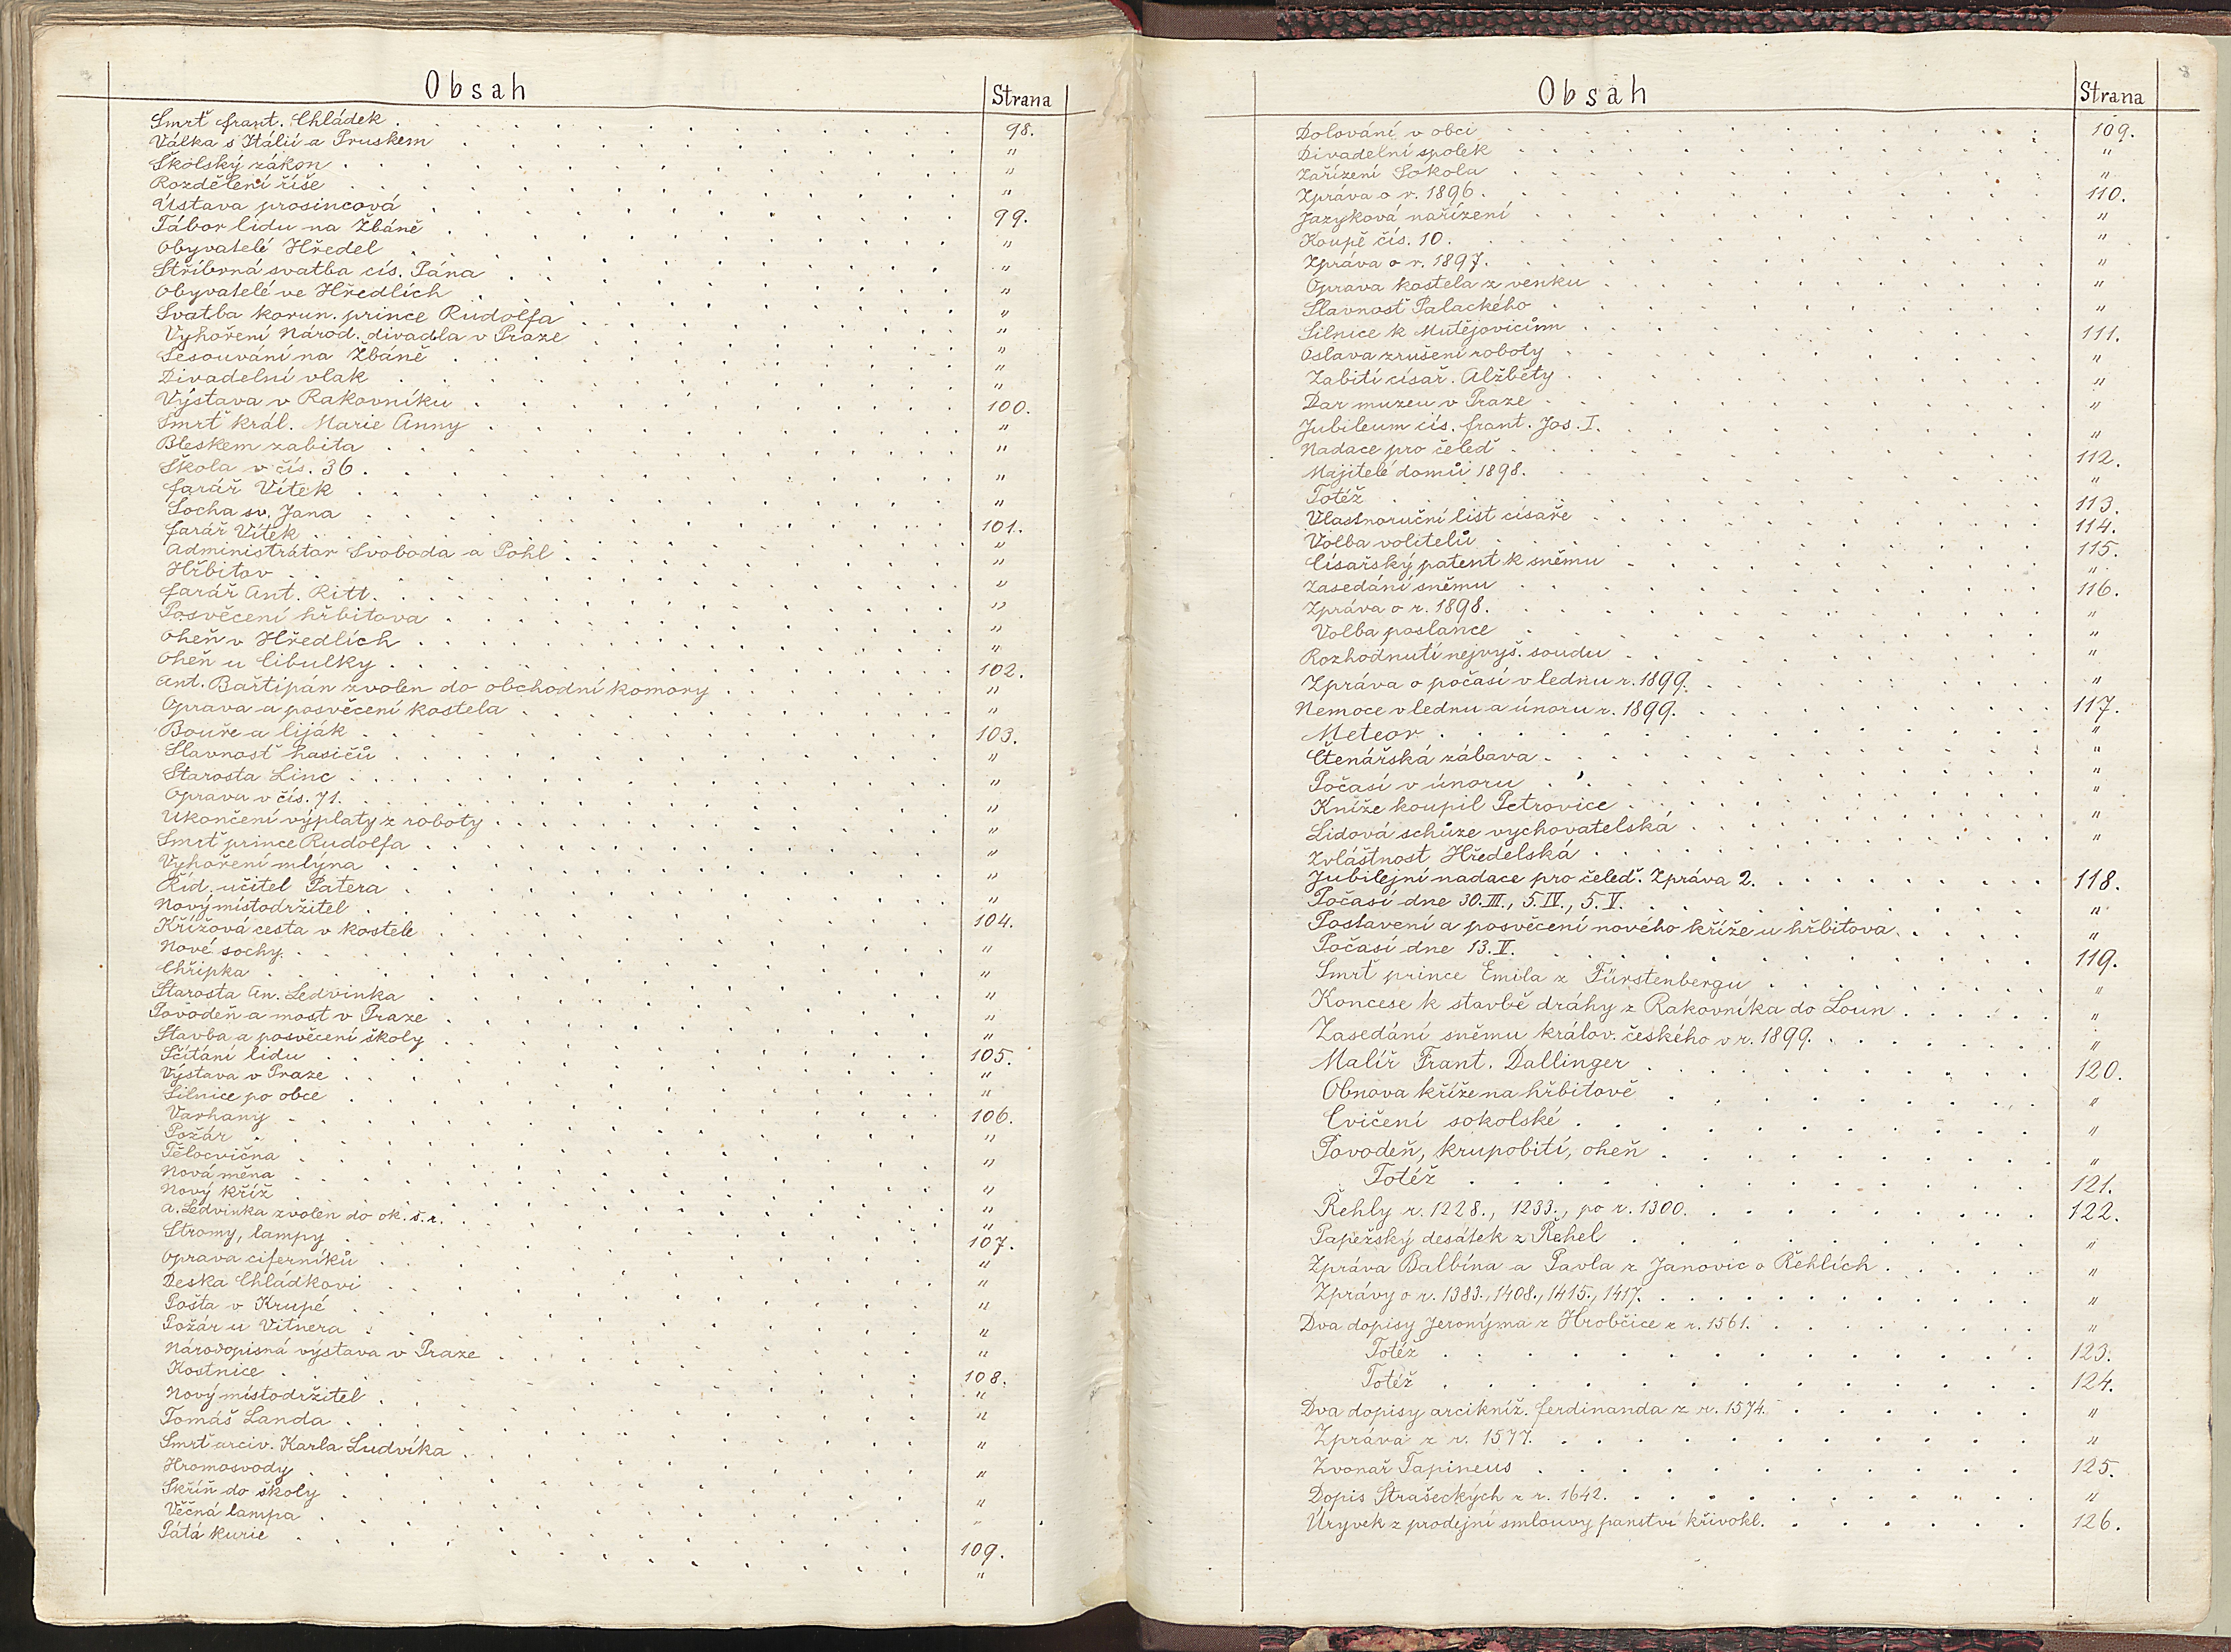 Obsah
Strana
Smrť Frant. Chládek 98.
Válka s Itálií a Pruskem "
Školský zákon "
Rozdělení říše "
Ústava prosincová 99.
Tábor lidu na Žbáně "
Obyvatelé Hředel "
Stříbrná svatba cís. Pána "
Obyvatelé ve Hředlích "
Svatba korun. prince Rudolfa "
Vyhoření Národ. divadla v Praze "
Sesouvání na Žbáně "
Divadelní vlak "
Výstava v Rakovníku 100.
Smrť král. Marie Anny "
Bleskem zabita "
Škola v čís. 36. "
Farář Vítek "
Socha sv. Jana 101.
Farář Vítek "
Administrátor Svoboda a Pohl "
Hřbitov "
Farář Ant. Ritt. "
Posvěcení hřbitova "
Oheň v Hředlích "
Oheň u Cibulky 102.
Ant. Bařtipán zvolen do obchodní komory "
Oprava a posvěcení kostela "
Bouře a liják 103.
Slavnosť hasičů "
Starosta Linc "
Oprava v čís. 71. "
Ukončení výplaty z roboty "
Smrť prince Rudolfa "
Vyhoření mlýna "
Říd. učitel Patera "
Nový místodržitel 104.
Křížová cesta v kostele "
Nové sochy "
Chřipka "
Starosta An. Ledvinka "
Povodeň a most v Praze "
Stavba a posvěcení školy 105.
Sčítání lidu "
Výstava v Praze "
Silnice po obce 106.
Varhany "
Požár "
Tělocvična "
Nová měna "
Nový kříž "
A. Ledvinka zvolen do ok. š. r. 107.
Stromy, lampy "
Oprava ciferníků "
Deska Chládkovi "
Pošta v Krupé "
Požár u Vitnera "
Národopisná výstava v Praze 108.
Kostnice "
Nový místodržitel "
Tomáš Landa "
Smrť arciv. Karla Ludvíka "
Hromosvody "
Skříň do školy "
Věčná lampa 109.
Pátá kurie "
8
Obsah
Strana
Dolování v obci 109.
Divadelní spolek "
Zařízení Sokola "
Zpráva o r. 1896. 110.
Jazyková nařízení "
Koupě čís. 10. "
Zpráva o r. 1897. "
Oprava kostela z venku "
Slavnosť Palackého "
Silnice k Mutějovicům 111.
Oslava zrušení roboty "
Zabití císař. Alžběty "
Dar muzeu v Praze "
Jubileum cís. Frant. Jos. I. "
Nadace pro čeleď 112.
Majitelé domů 1898. "
Totéž 113.
Vlastnoruční list císaře 114.
Volba volitelů 115.
Císařský patent k sněmu "
Zasedání sněmu 116.
Zpráva o r. 1898. "
Volba poslance "
Rozhodnutí nejvyš. soudu "
Zpráva o počasí v lednu r. 1899. "
Nemoce v lednu a únoru r. 1899. 117.
Meteor "
Čtenářská zábava "
Počasí v únoru "
Kníže koupil Petrovice "
Lidová schůze vychovatelská "
Zvláštnost Hředelská "
Jubilejní nadace pro čeleď. Zpráva 2. 118.
Počasí dne 30. III., 5. IV., 5. V. "
Postavení a posvěcení nového kříže u hřbitova "
Počasí dne 13. V. 119.
Smrť prince Emila z Fürstenbergu "
Koncese k stavbě dráhy z Rakovníka do Loun "
Zasedání sněmu králov. českého v r. 1899. "
Malíř Frant. Dallinger 120.
Obnova kříže na hřbitově "
Cvičení sokolské "
Povodeň, krupobití, oheň "
Totéž 121.
Řehly r. 1228., 1233., po r. 1300. 122.
Papežský desátek z Řehel "
Zpráva Balbína a Pavla z Janovic o Řehlích "
Zprávy o r. 1383., 1408., 1415., 1417. "
Dva dopisy Jeronýma z Hrobčice z r. 1561. "
Totéž 123.
Totéž 124.
Dva dopisy arcikníž. Ferdinanda z r. 1574. "
Zpráva z r. 1577. "
Zvonař Tapineus 125.
Dopis Strašeckých z r. 1642. "
Úryvek z prodejní smlouvy panství křivokl. 126.